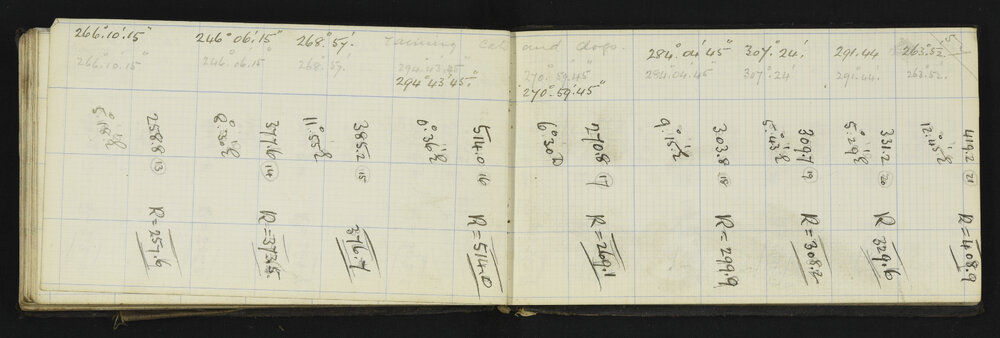 266°.10'.15" 246° 06'.15" 268°.57'. raining cats and dogs. 284°.04'.45" 307°.24'. 291.44 263°.52
266.10.15 246.06.15 268°.57. 294°.43'.45" 270°.59'.45" 284.04.45" 307°.24' 291°.44. 263°.52.
294°43'45" 270°.59'45"
258.8 (13) R = 257.6
377.6 (14) R = 373.5.
11.55
385.2 15 376.7
0.36
514.0 16 R = 514.0
6°.30
270.8 17 R = 269.1
303.8 (18) R = 299.9
5.43
309.7 (19) R = 308.2
5.29
331.2 (20) R 329.6
12.45
419.2 (21) R = 408.9